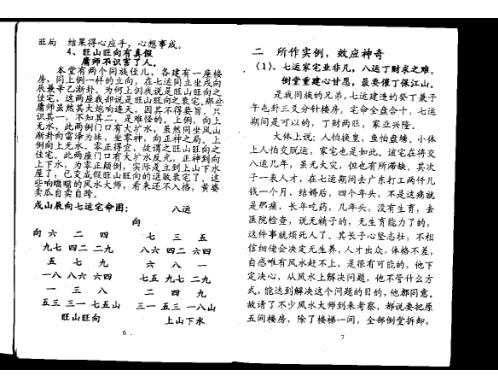 旺局  结果得心应手，心想事成。
4、旺山旺向有真假
庸师不识害了人。
本堂有两个同族侄儿，各建有一座楼
房，同上例一样的立向，在七运同立坐戌向
辰兼辛乙卦，为何上例我说是旺山旺向之
住宅，这两座我却说是旺山旺向之衰宅，
庸师虽然其大炮响连天，因其不得要旨，只
识其一，不知其二，是难怪的。上例，向上
无水，此两例门口有大圹水，虽然同坐风山
渐卦向雷泽为妹，坐零神，向正神之局，上
例向上无水，零正得宜，故谓之旺山旺向之
住宅。此两座门口有大圹水反光，正神到向
上下水，为零正颠倒，实际是立到上山下水
屋了，已变成假旺山旺向的退败衰宅了，这
些响嘴嘴的风水大师，看来还不入格，黄婆
卖瓜自卖自跨。
戌山辰向七运宅命图：  八运
向
向 六 二 四  七 三 五
九七 四二 二九  八六 四二 六四
五 七 九  六 八 一
一八 八六 三六  七五 九七 二九
一 三 八  二 四 九
五三 三一 七五山  三一 五三 一八山
旺山旺向  上山下水
6
二 所作实例，效应神奇
（1）、七运家宅业非凡，八运丁财求之难。
倒堂重建心甘愿，最要催丁保江山。
是我同族的兄弟，七运建造的癸丁兼子
午七卦三爻分针楼房，宅命全盘合十，七运
期间是可以的，丁财两旺，家业兴隆。
大体上说：人怕挨皇，鱼怕盘塘，小体
上人怕交脱运，家宅也是如此。该宅在将交
八运几年，虽无大灾，但也有所滞缺，其次
子一表人才，在七运期间去广东打工两仟几
钱一个月，结婚后，四个年头，不是这痛就
是那痛，长年吃药，几年头，没有生育，去
医院检查，说无精子的，无生育能力了的，
这件事就烦死人了。其长子心坚志壮，不相
信细佬会决定无生养，人才出众，体格不差，
自感唯有风水赶不上，是很有可能的，他下
定决心，从风水上解决问题，他不管什么方
式，能达到解决这个问题的目的，他都同意。
故请了不少风水大师到来考察，都说要把原
五间楼房，除了楼梯一间，全部倒堂拆卸，
7